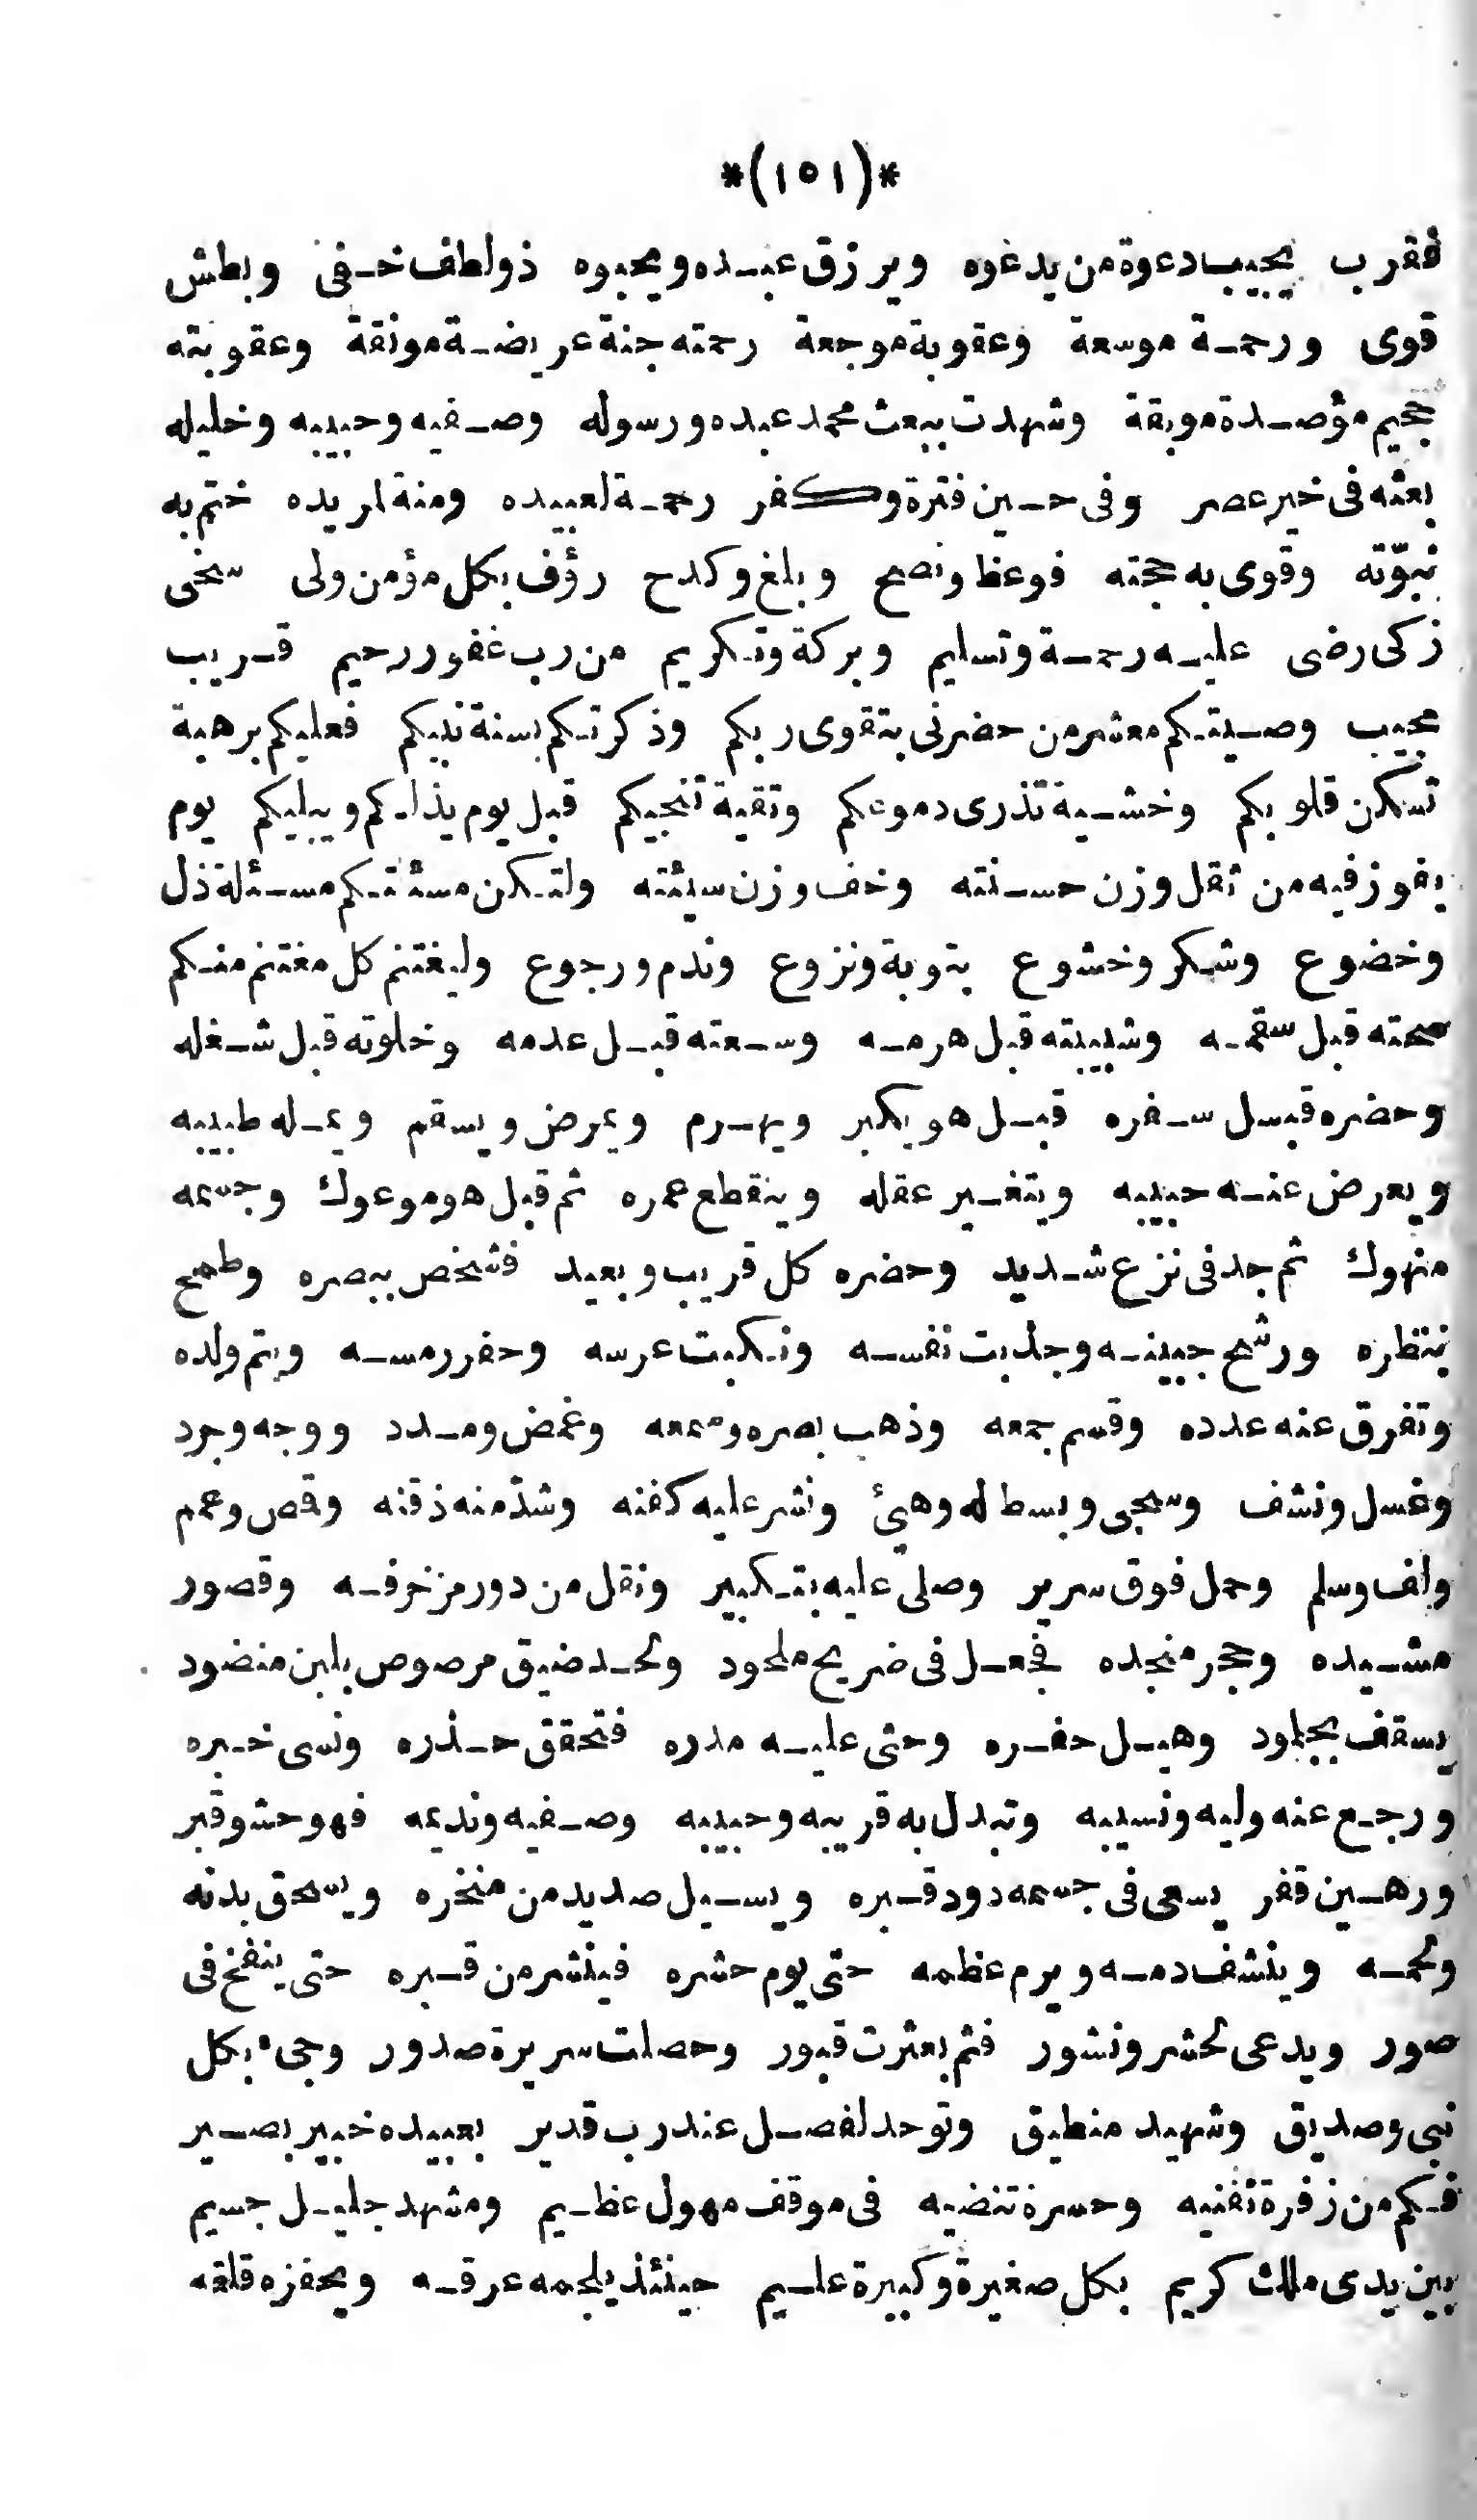 *(١٥١)*
فقرب يجيب دعوة من يدعوه ويرزق عبده ويحبوه ذو لطف خفي وبطش
قوى ورحمة موسعة وعقوبة موجعة رحمته جنة عريضة مونقة وعقوبته
جحيم مؤصدة موبقة وشهدت ببعث محمد عبده ورسوله وصفيه وحبيبه وخليله
بعثه فى خير عصر وفى حين فترة وكفر رحمة لعبيده ومنة لمريده ختم به
نبوّته وقوى به حجته فوعظ ونصح وبلغ وكدح رؤف بكل مؤمن ولى سخى
زكى رضى عليه رحمة وتسليم وبركة وتكريم من رب غفور رحيم قريب
مجيب وصيتكم معشر من حضرنى بتقوى ربكم وذكرتكم بسنة نبيكم فعليكم برهبة
تسكن قلوبكم وخشية تذرى دموعكم وتقية تنجيكم قبل يوم يذلكم ويبليكم يوم
يفوز فيه من ثقل وزن حسنته وخف وزن سيئته ولتكن مسئلتكم مسئلة ذل
وخضوع وشكر وخشوع بتوبة ونزوع وندم ورجوع وليغتنم كل مغتنم منكم
صحته قبل سقمه وشبيبته قبل هرمه وسعته قبل عدمه وخلوته قبل شغله
وحضره قبل سفره قبل هو يكبر ويهرم ويمرض ويسقم ويمله طبيبه
ويعرض عنه حبيبه ويتغير عقله وينقطع عمره ثم قبل هو موعوك وجسمه
منهوك ثم جد فى نزع شديد وحضره كل قريب وبعيد فشخص ببصره وطمح
بنظره ورشح جبينه وجذبت نفسه ونكبت عرسه وحفر رمسه ويتم ولده
وتفرق عنه عدده وقسم جمعه وذهب بصره وسمعه وغمض ومدد ووجه وجرد
وغسل ونشف وسجى وبسط له وهيئ ونشر عليه كفنه وشدّ منه ذقنه وقص وعمم
ولف وسلم وحمل فوق سرير وصلى عليه بتكبير ونقل من دور مزخرفه وقصور
مشيده وحجر منجده فجعل فى ضريح ملحود ولحد ضيق مرصوص بلبن منضود
يسقف بجلمود وهيل حفره وحثى عليه مدره فتحقق حذره ونسى خبره
ورجع عنه وليه ونسيبه وتبدل به قريبه وحبيبه وصفيه ونديمه فهو حشو قبر
ورهين قفر يسعى فى جسمه دود قبره ويسيل صديد من منخره ويسحق بدنه
ولحمه وينشف دمه ويرم عظمه حتى يوم حشره فينشر من قبره حتى ينفخ فى
صور ويدعى لحشر ونشور فثم بعثرت قبور وحصلت سريرة صدور وجىء بكل
نبى وصديق وشهيد منطيق وتوحد لفصل عند رب قدير بعبيده خبير بصير
فكم من زفرة تفنيه وحسرة تنضيه فى موقف مهول عظيم ومشهد جليل جسيم
بين يدى ملك كريم بكل صغيرة وكبيرة عليم حينئذ يلجمه عرقه ويحفزه قلقه